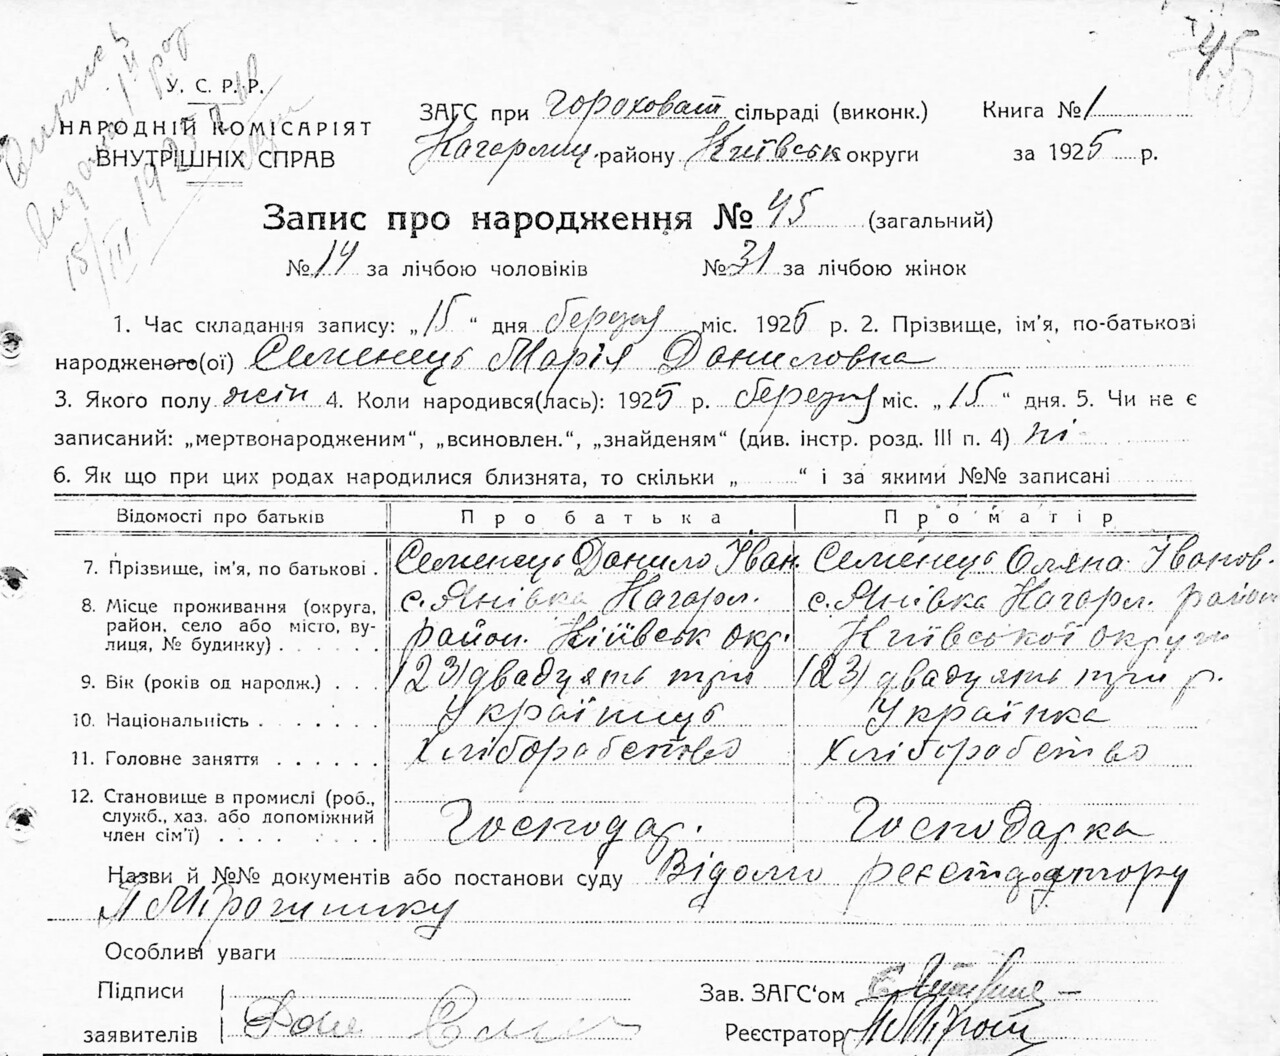 45
Виписъ
видана 1й раз
15/III 1925 р
У. С. Р. Р.
НАРОДНІЙ КОМІСАРІЯТ
ВНУТРІШНІХ СПРАВ
ЗАГС при Гороховат сільраді (виконк.) Книга № 1
Кагарлиц. району Київськ округи за 1925 р.
Запис про народження № 45 (загальний)
№ 14 за лічбою чоловіків № 31 за лічбою жінок
1. Час складання запису: „15“ дня березня міс. 1925 р. 2. Прізвище, ім’я, по-батькові
народженого(ої) Семенець Марія Даниловна
3. Якого полу жін 4. Коли народився(лась): 1925 р. березня міс. „15“ дня. 5. Чи не є
записаний: „мертвонародженим“, „всиновлен.“, „знайденям“ (див. інстр. розд. III п. 4) ні
6. Як що при цих родах народилися близнята, то скільки „ “ і за якими №№ записані
Відомості про батьків Про батька Про матір
7. Прізвище, ім’я, по батькові . Семенець Данило Іван. Семенець Оляна Іванов.
8. Місце проживання (округа, с. Янівка Кагарл. с. Янівка Кагарл. район
район, село або місто, ву-
лиця, № будинку) . . . . . . район. Київськ окр. Київської округи
9. Вік (років од народж.) . . . (23) двадцять три (23) двадцять три р.
10. Національність . . . . . . . Українець Українка
11. Головне заняття . . . . . . Хліборобство Хліборобство
12. Становище в промислі (роб.,
служб., хаз. або допоміжний
член сім’ї) . . . . . . . Господар. Господарка
Назви й №№ документів або постанови суду Відомо реєстратору
П Мірошнику
Особливі уваги
Підписи
заявителів
Зав. ЗАГС‘ом
Реєстратор П Мірош